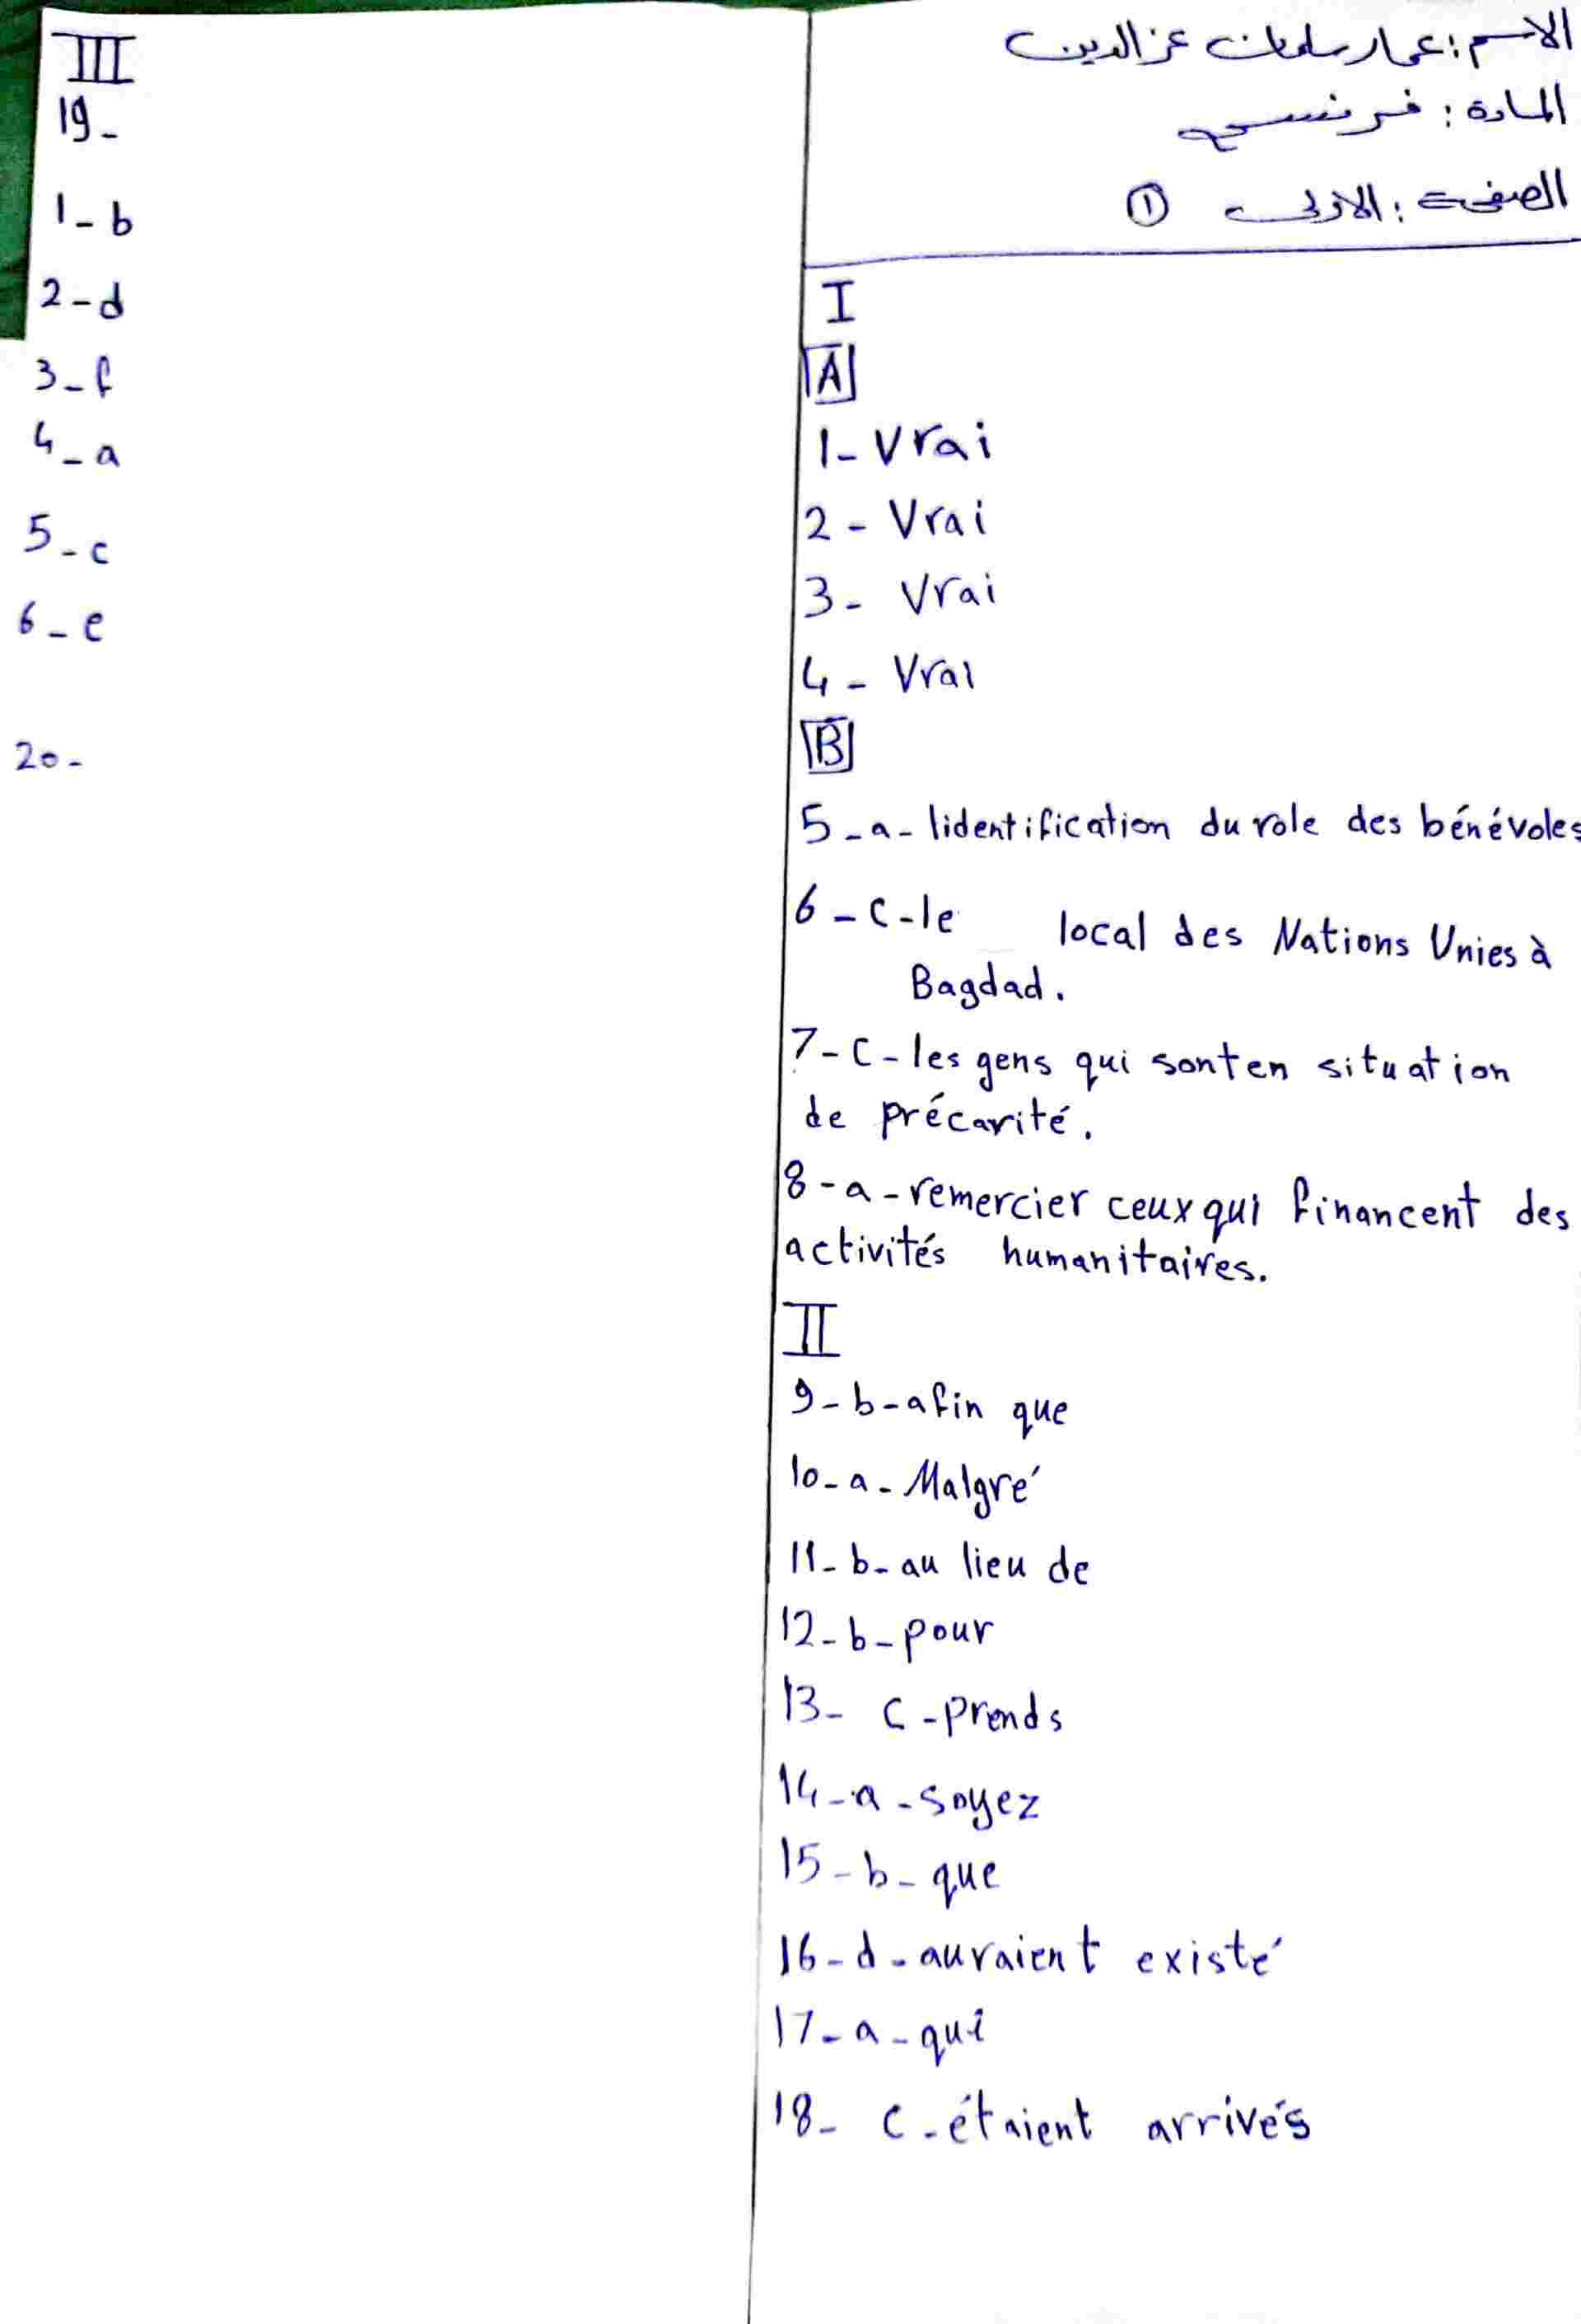 الاسم: عمار سلمان عز الدين
المادة: فرنسي
الصفحة: الأولى ①
I
A
1- Vrai
2- Vrai
3- Vrai
4- Vrai
B
5-a- lidentification du role des bénévoles
6-c-le local des Nations Unies à
Bagdad.
7-c-les gens qui sont en situation
de précarité.
8-a-remercier ceux qui financent des
activités humanitaires.
II
9-b-afin que
10-a-Malgré
11-b-au lieu de
12-b-pour
13-c-prends
14-a-soyez
15-b-que
16-d-auraient existé
17-a-qui
18-c-étaient arrivés
III
19-
1-b
2-d
3-f
4-a
5-c
6-e
20-